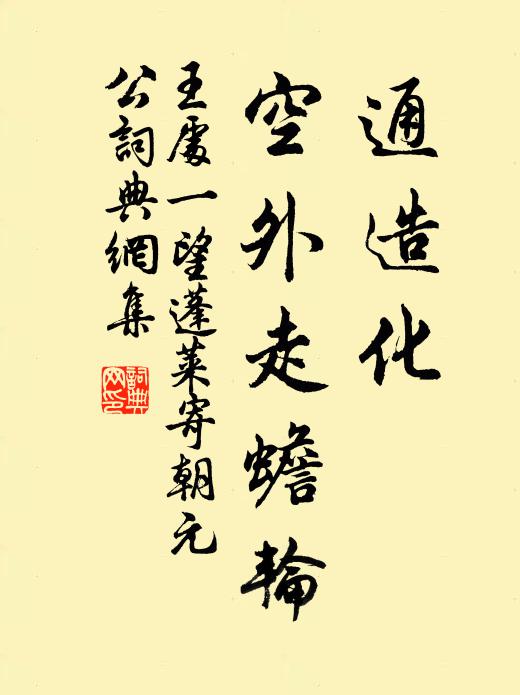 通造化
空外走蟾輪
王處一望蓬萊寄朝元
公詞典網集
詞典
网印